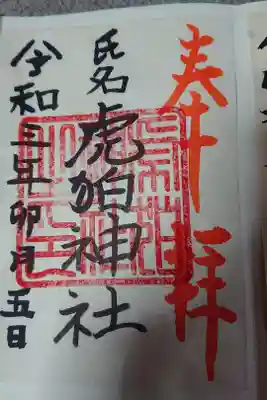 奉拝
氏名
虎狛神社
令和三年卯月五日